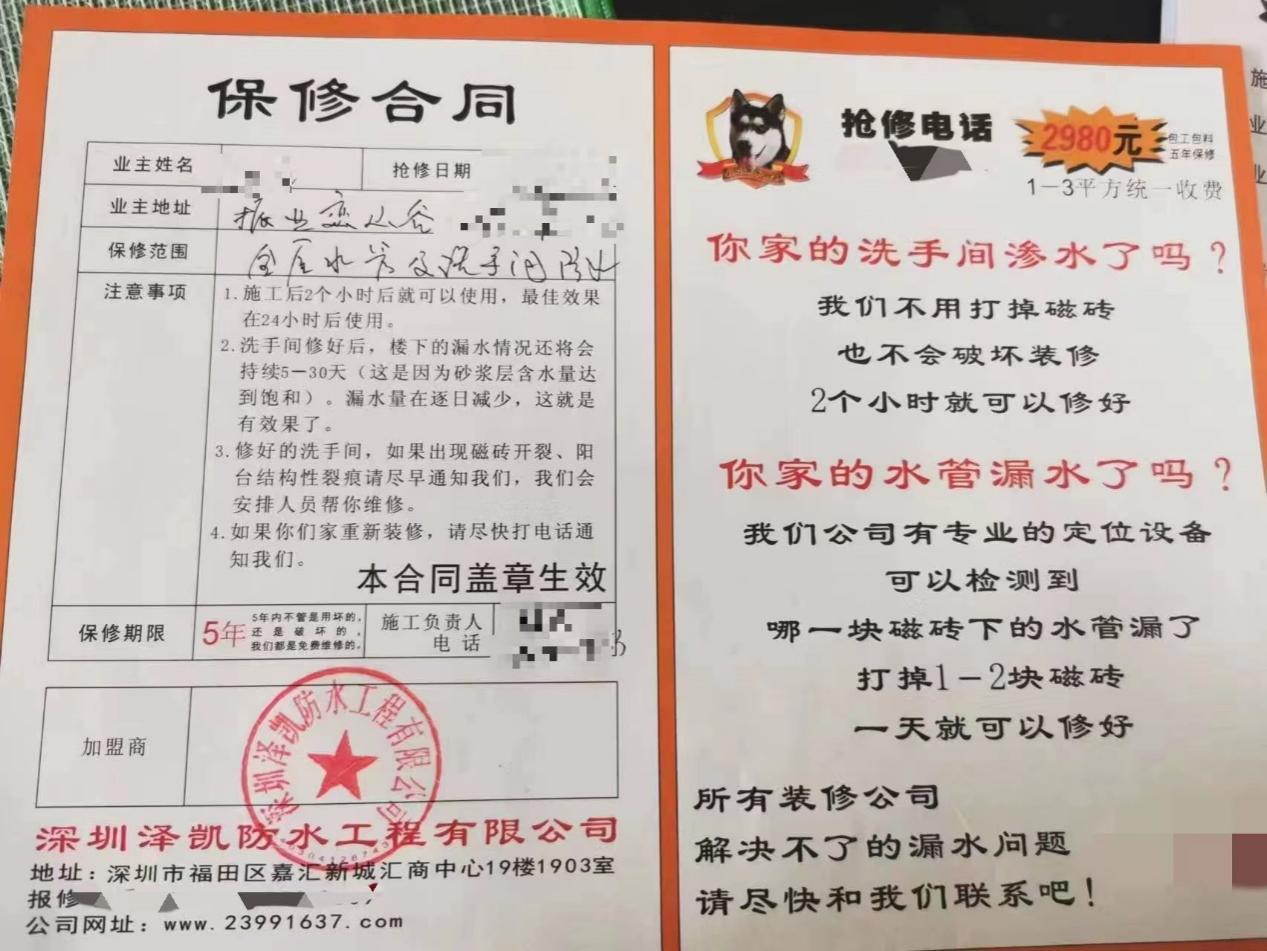 保修合同
业主姓名
抢修日期
业主地址
振业峦山谷
保修范围
全屋水管及洗手间防水
注意事项
1.施工后2个小时后就可以使用，最佳效果
在24小时后使用。
2.洗手间修好后，楼下的漏水情况还将会
持续5－30天（这是因为砂浆层含水量达
到饱和）。漏水量在逐日减少，这就是
有效果了。
3.修好的洗手间，如果出现磁砖开裂、阳
台结构性裂痕请尽早通知我们，我们会
安排人员帮你维修。
4.如果你们家重新装修，请尽快打电话通
知我们。
本合同盖章生效
保修期限
5年
5年内不管是用坏的，
还是破坏的，
我们都是免费维修的。
施工负责人
电话
加盟商
深圳泽凯防水工程有限公司
深圳泽凯防水工程有限公司
地址：深圳市福田区嘉汇新城汇商中心19楼1903室
报修
公司网址：www.23991637.com
抢修电话
2980元
包工包料
五年保修
1－3平方统一收费
你家的洗手间渗水了吗？
我们不用打掉磁砖
也不会破坏装修
2个小时就可以修好
你家的水管漏水了吗？
我们公司有专业的定位设备
可以检测到
哪一块磁砖下的水管漏了
打掉1－2块磁砖
一天就可以修好
所有装修公司
解决不了的漏水问题
请尽快和我们联系吧！
施
业
业